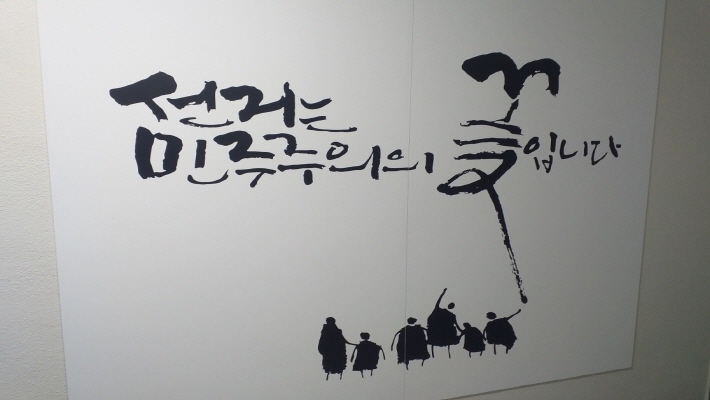 선거는
민주주의의 꽃입니다